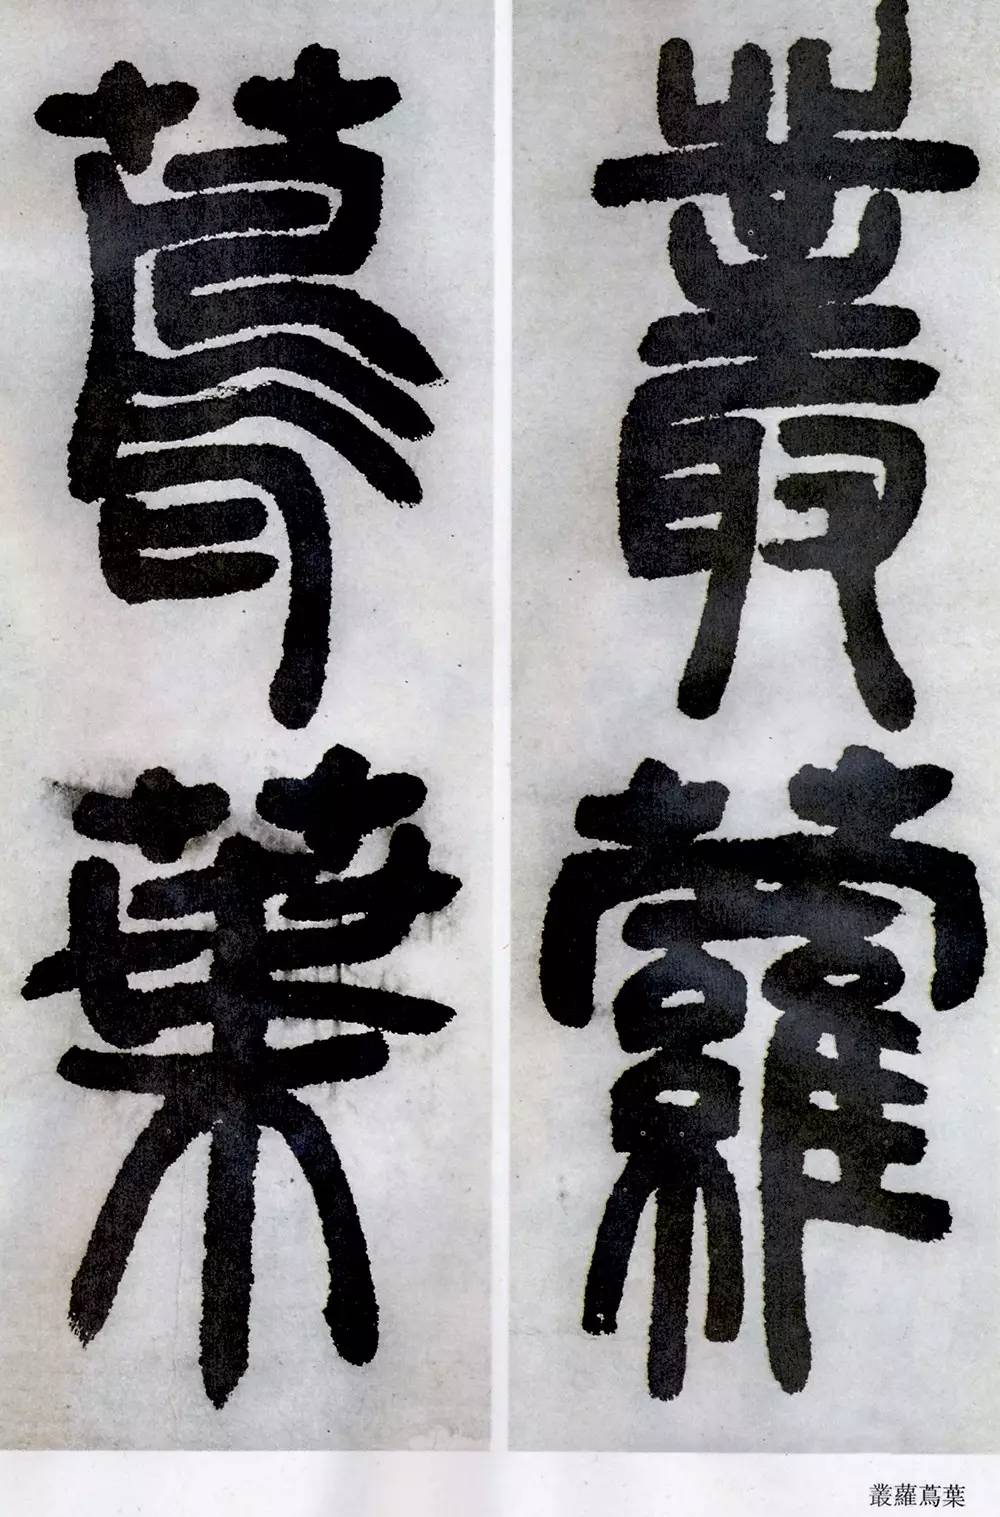 叢蘿
蔦葉
叢蘿蔦葉